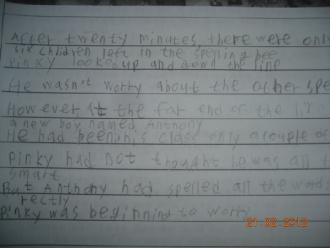 After twenty minutes, there were only
six children left in the spelling bee
Pinky looked up and down the line
He wasnot worry about the other spe
However at the far end of the li
a new boy named Anthony
He had been in his class only a couple of
Pinky had not thought he was all t
smart
But Anthony had spelled all the word
rectly
Pinky was beginning to worry
21/02/2012